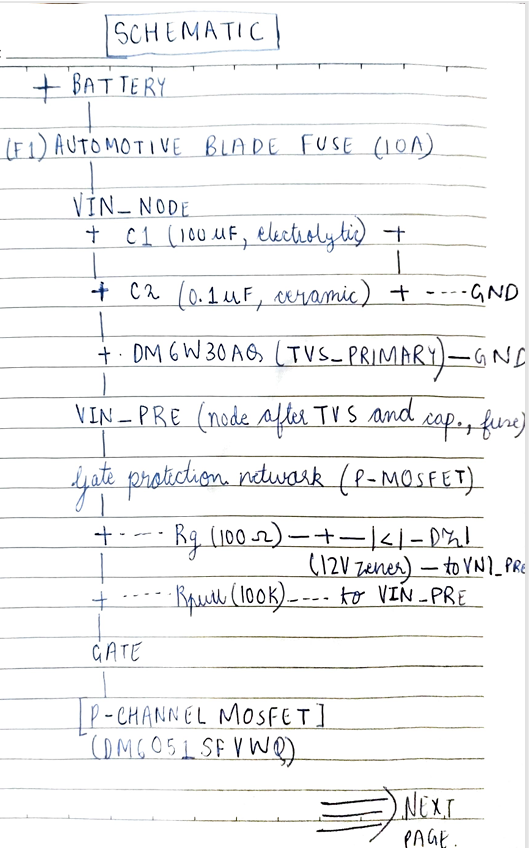 SCHEMATIC
+ BATTERY
(F1) AUTOMOTIVE BLADE FUSE (10A)
VIN_NODE
+ C1 (100 uF, electrolytic) +
+ C2 (0.1uF, ceramic) + ----GND
+. DM6W30AQ (TVS_PRIMARY)—GND
VIN_PRE (node after TVS and cap., fuse)
Gate protection network (P-MOSFET)
+ ---- Rg (100Ω) — + —|<|— DZ1
(12V zener) — to VN1_PRE
+ ...... Rpull (100K)---- to VIN_PRE
GATE
[P-CHANNEL MOSFET]
(DM6051SFVWQ)
NEXT
PAGE.